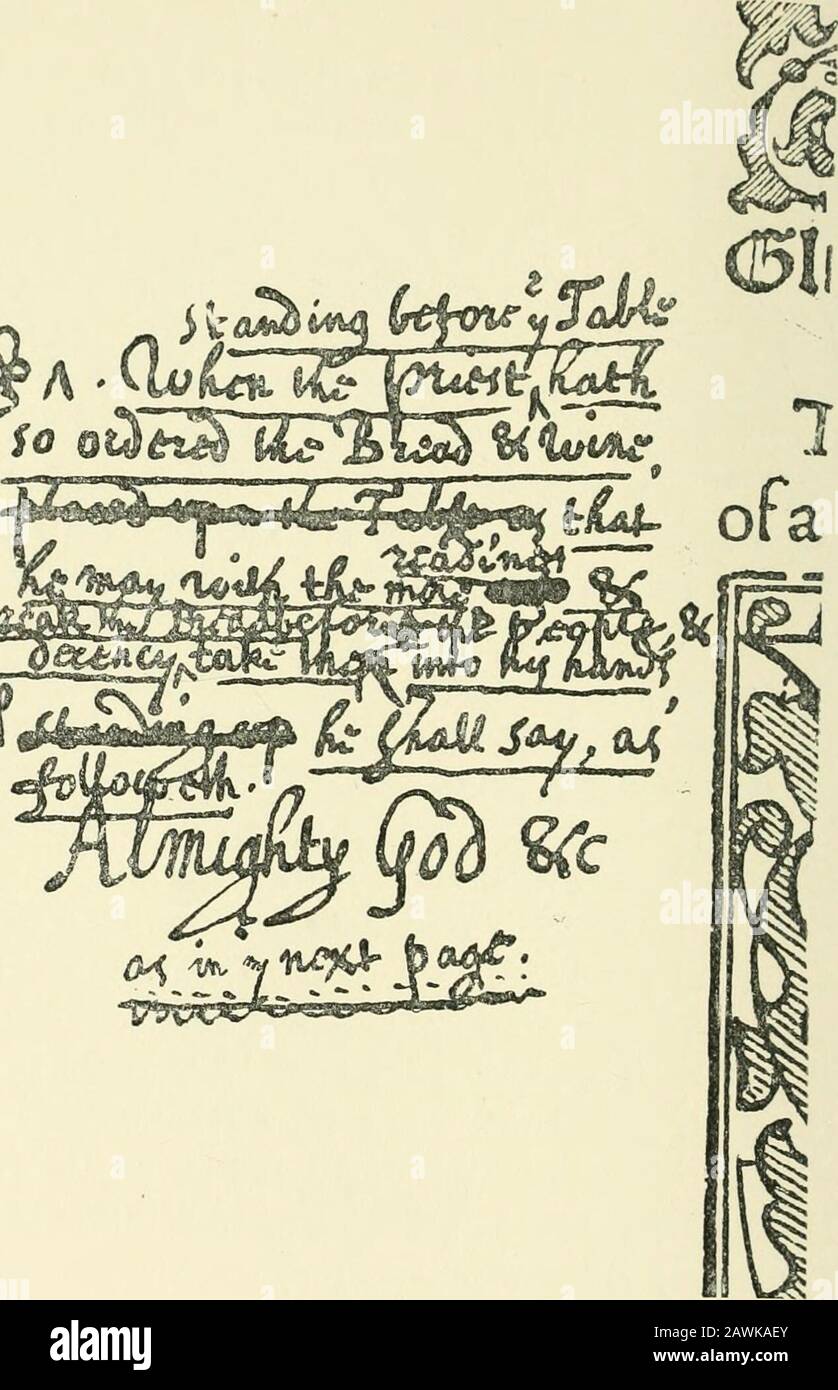 standing before yᵉ Table
^ . When the Priest, hath
so ordered the Bread & Wine,
placed upon the Table as that
readines
he may with the more &
break the Bread before the People, &
decency, take them into his hands,
standing up he shall say, as
followeth.
Almighty God &c
as in yᵉ next page.
Gl
T
of a
alamy
Image ID: 2AWKAEY
www.alamy.com